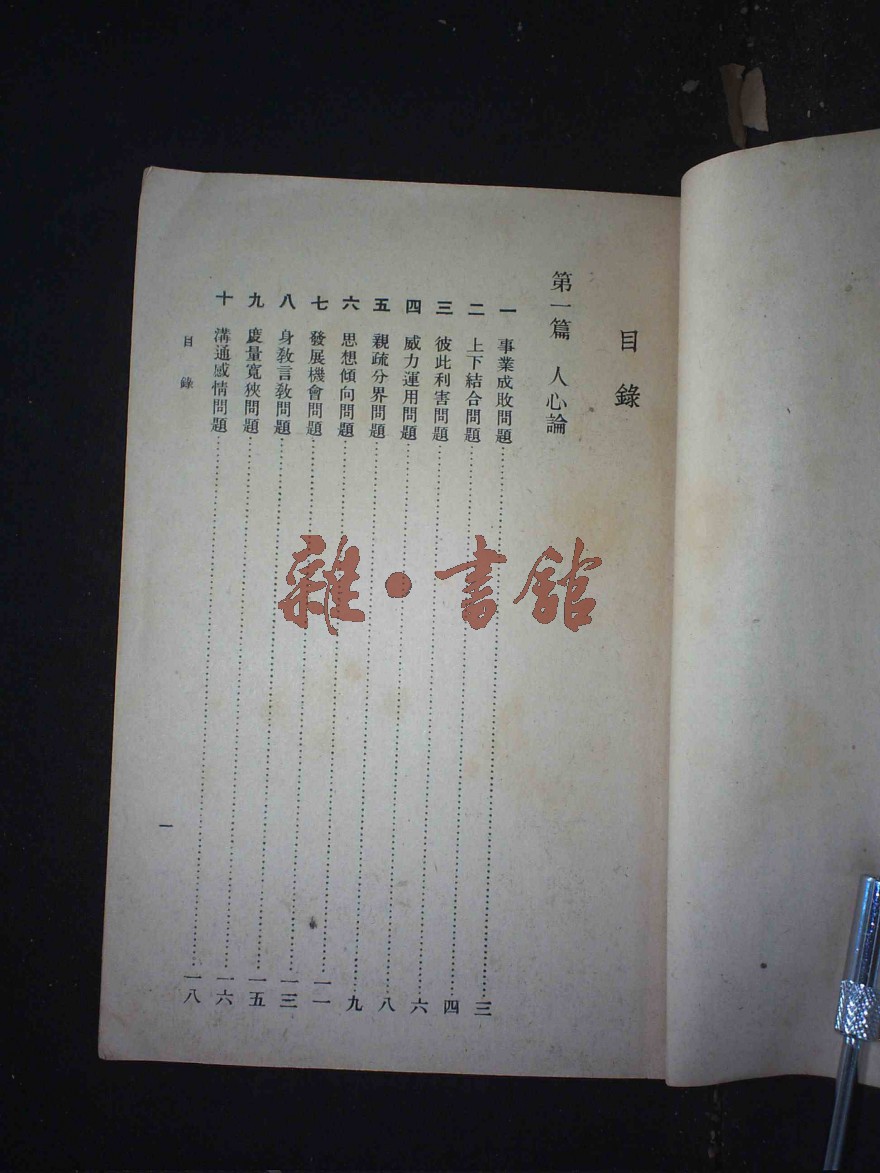 目錄
第一篇 人心論
一 事業成敗問題……三
二 上下結合問題……四
三 彼此利害問題……六
四 威力運用問題……八
五 親疏分界問題……九
六 思想傾向問題……一一
七 發展機會問題……一三
八 身教言教問題……一五
九 度量寬狹問題……一六
十 溝通感情問題……一八
目錄
一
雜·書館